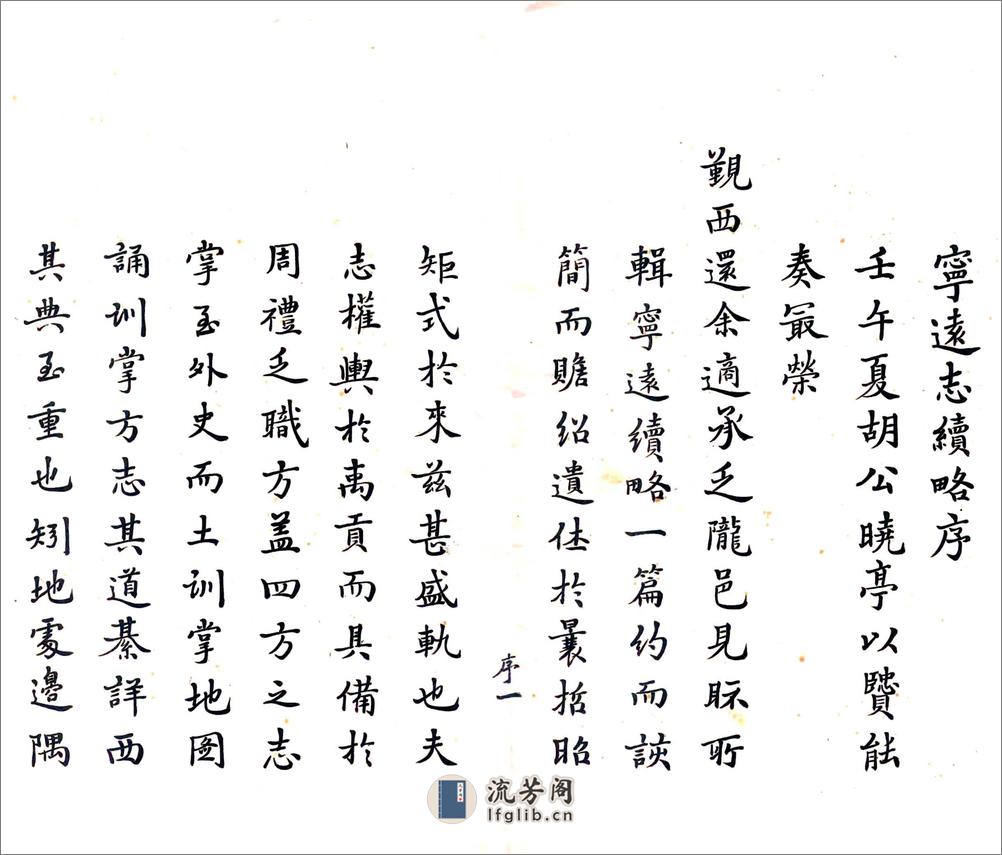 寧遠志續略序
壬午夏胡公曉亭以賢能
奏最榮
覲西還余適承乏隴邑見眎所
輯寧遠續略一篇約而該
簡而贍紹遺佳於曩哲昭
序一
矩式於來茲甚盛軌也夫
志權輿於禹貢而具備於
周禮之職方盖四方之志
掌至外史而土训掌地图
誦训掌方志其道綦詳西
其典至重也矧地處邊隅
流芳阁
lfglib.cn